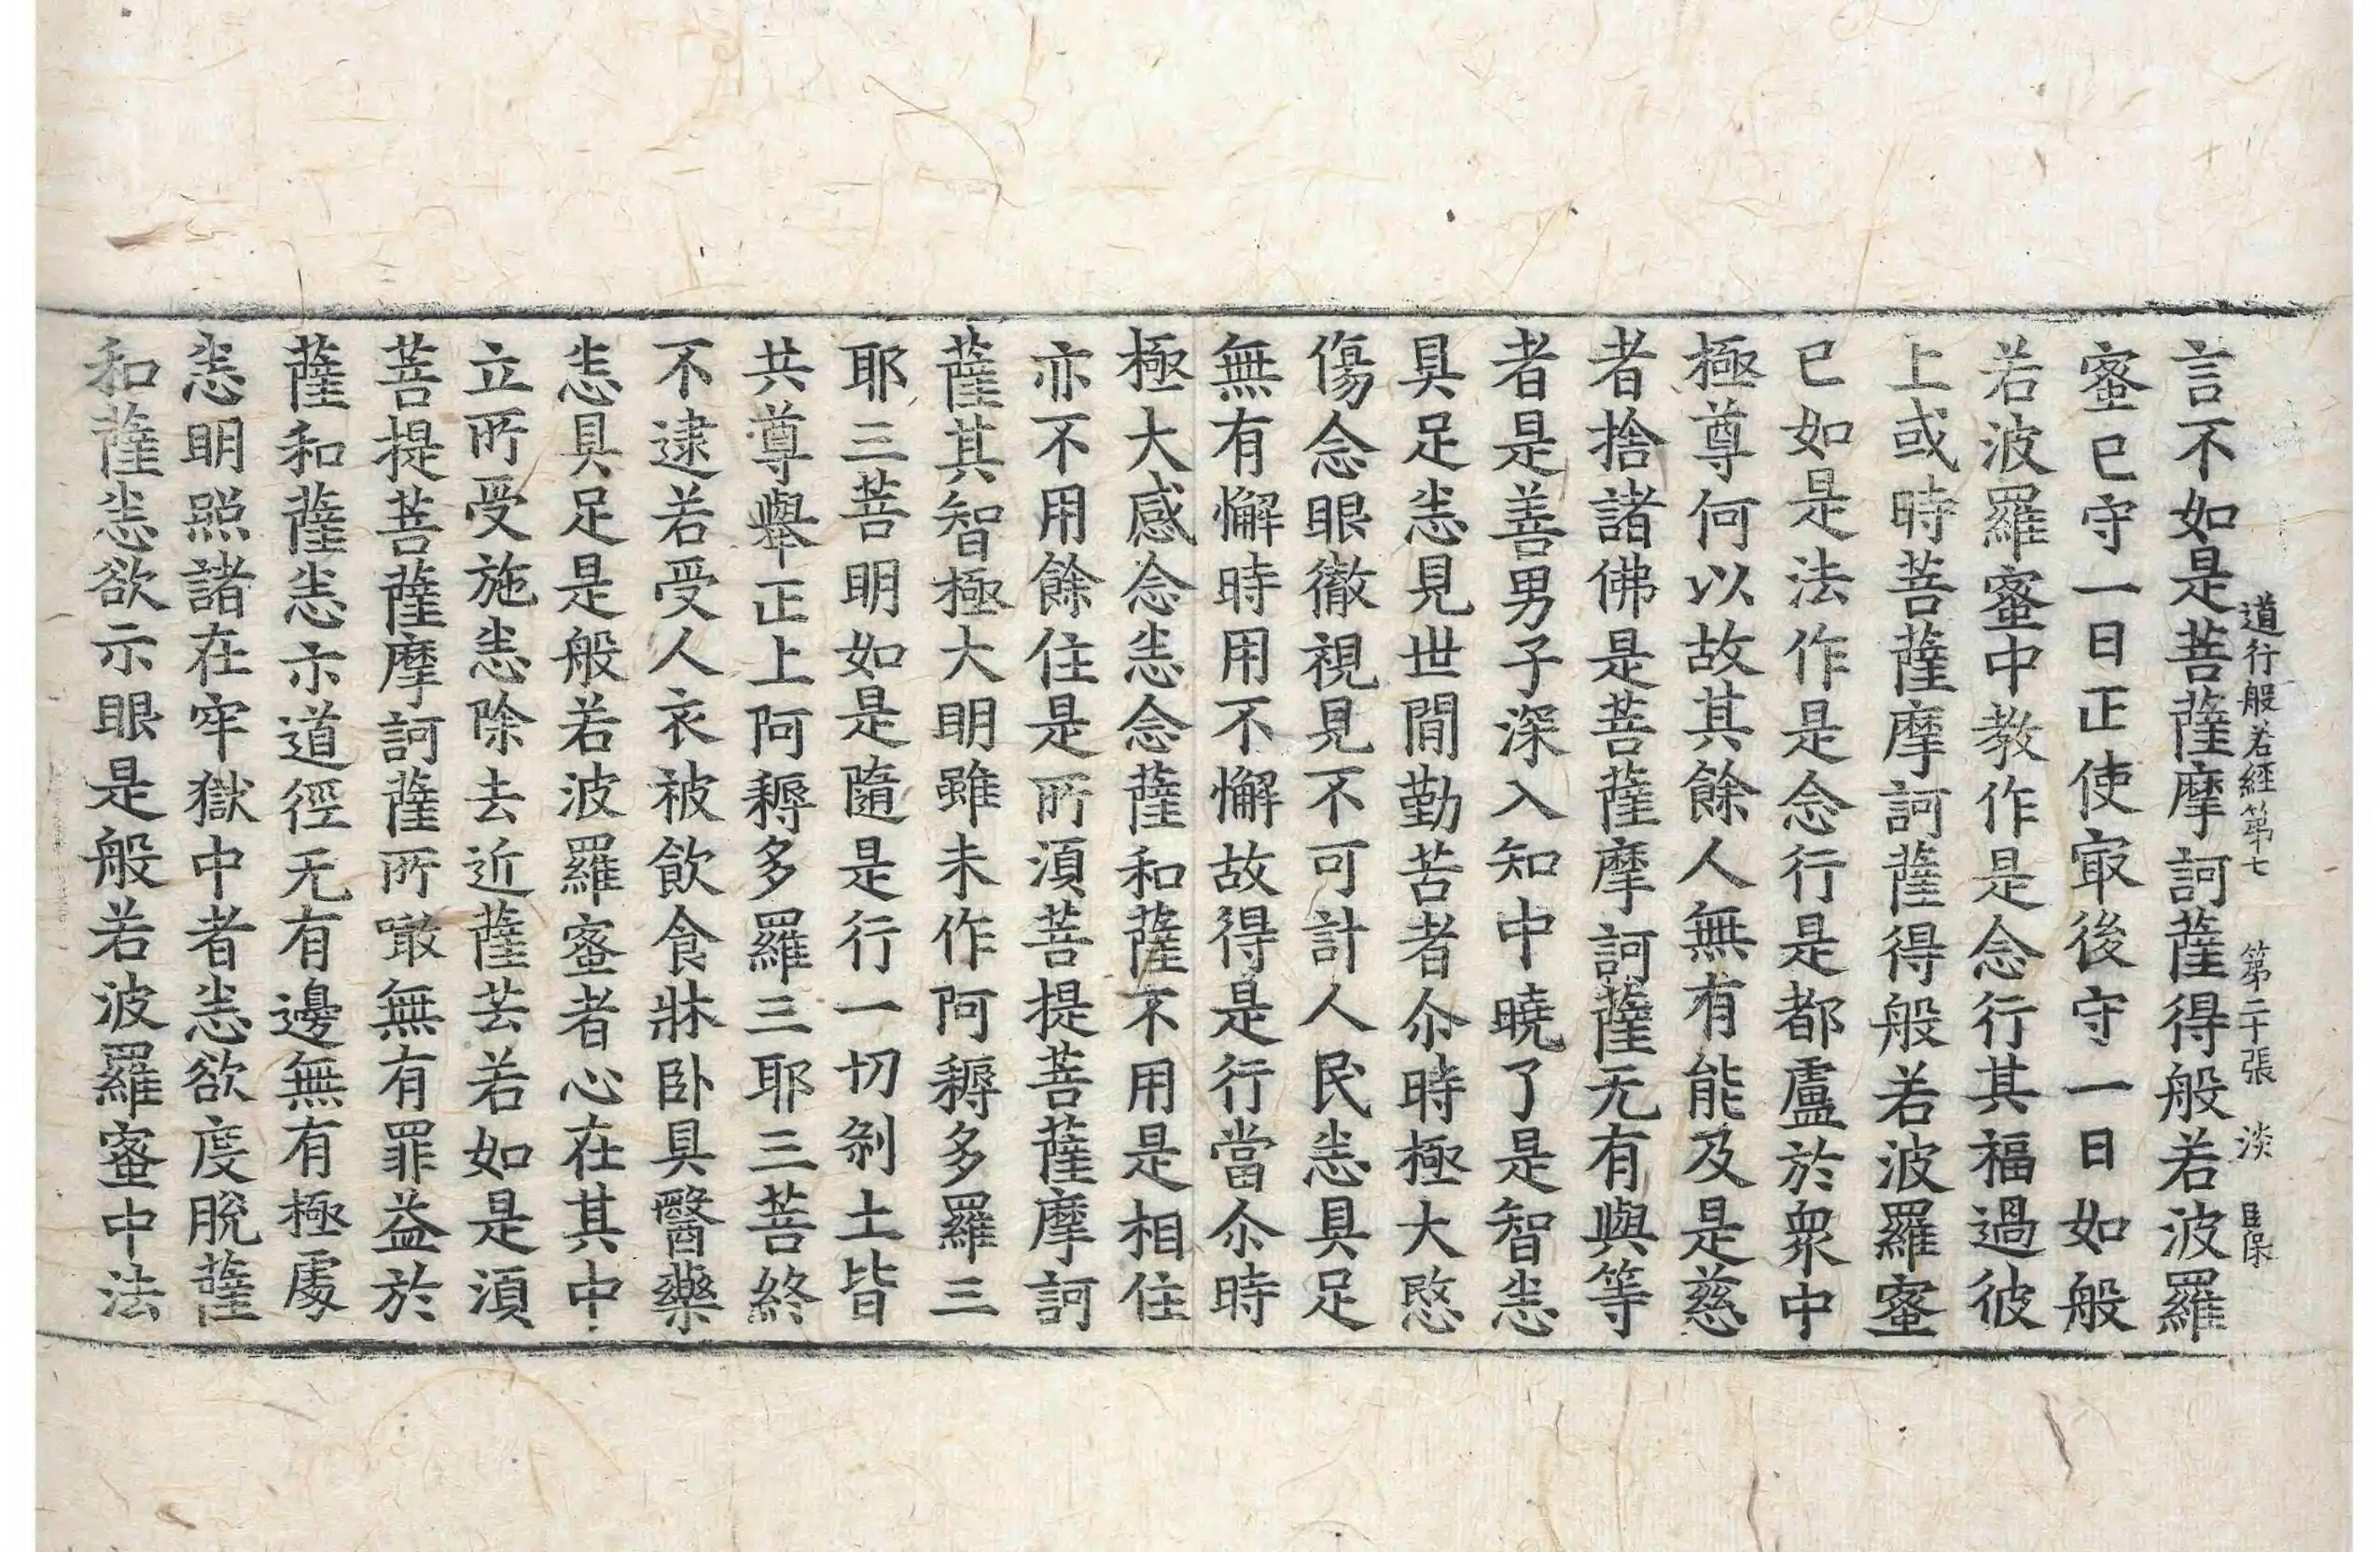 道行般若經第七 第二十張 淡
言不如是菩薩摩訶薩得般若波羅
蜜已守一日正使㝡後守一日如般
若波羅蜜中教作是念行其福過彼
上或時菩薩摩訶薩得般若波羅蜜
已如是法作是念行是都盧於衆中
極尊何以故其餘人無有能及是慈
者捨諸佛是菩薩摩訶薩无有與等
者是善男子深入知中曉了是智㤀
具足㤀見世間勤苦者尒時極大愍
傷念眼徹視見不可計人民㤀具足
無有懈時用不懈故得是行當尒時
極大感念㤀念薩和薩不用是相住
亦不用餘住是所湏菩提菩薩摩訶
薩其智極大明雖未作阿耨多羅三
耶三菩明如是隨是行一切剎土皆
共尊舉正上阿耨多羅三耶三菩終
不逮若受人衣被飲食牀卧具醫藥
㤀具足是般若波羅蜜者心在其中
立所受施㤀除去近薩芸若如是湏
菩提菩薩摩訶薩所噉無有罪益於
薩和薩㤀示道徑无有邊無有極處
㤀明照諸在牢獄中者㤀欲度脫薩
和薩㤀欲示眼是般若波羅蜜中法